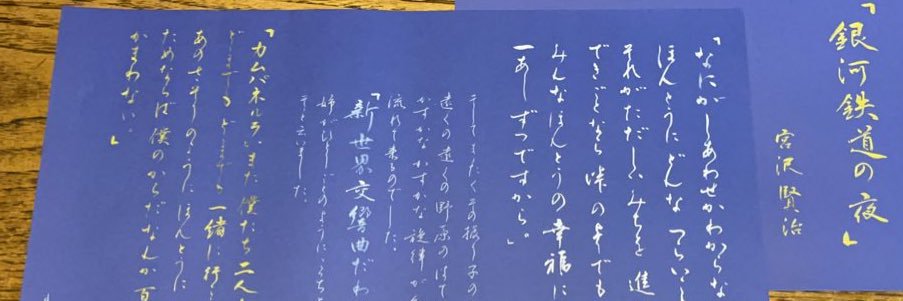 「銀河鉄道の夜」
宮沢賢治
「なにがしあわせかわからな
ほんとうにどんなつらいこ
それがただしいみちを進
できごとなら峠の
みんなほんとうの幸福に
一あしずつですから。」
そしてまったくその振り子の
遠くの遠くの野原のはて
かすかなかすかな旋律が
流れて来るのでした。
「新世界交響曲だわ
姉がひとりごとのようにこっち
そう云いました。
「カムパネルラ、また僕たち二人
どこまでもどこまでも一緒に行
あのさそりのようにほんとうに
ためならば僕のからだなんか百
かまわない。」